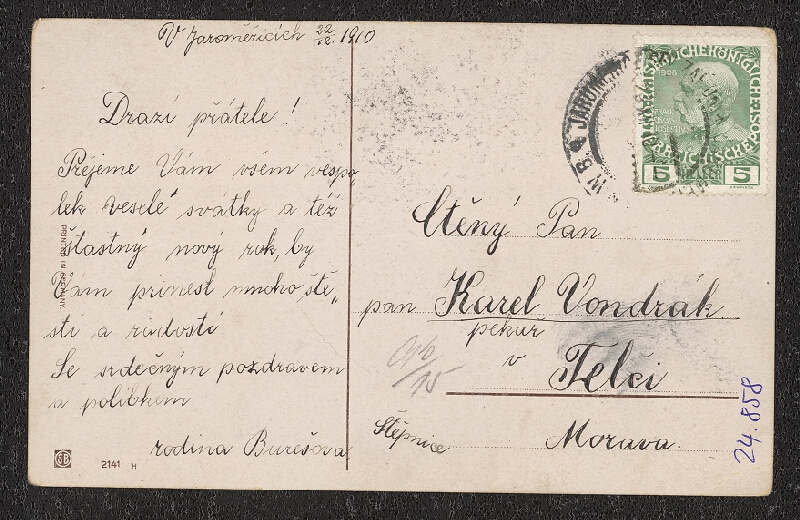 V Jaroměřicích 22/12. 1910
Drazí přátele!
Přejeme Vám všem vespo„
lek veselé svátky a též
šťastný nový rok, by
Vám přinesl mnoho ště„
stí a radosti
Se srdečným pozdravem
a políbkem
rodina Burešova
PRINTED IN GERMANY
2141 H
Ctěný Pan
pan Karel Vondrák
pekař
v
Telči
Štěpnice
Morava.
24.858
1908
5 5